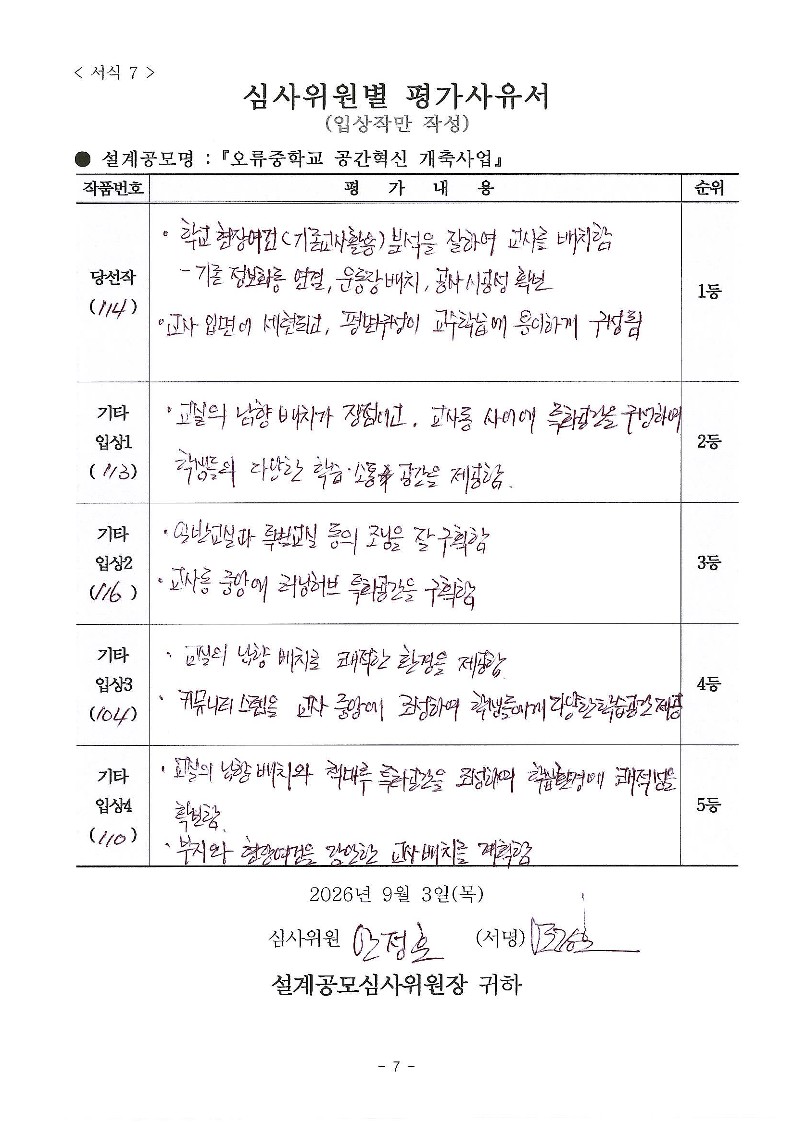 < 서식 7 >
심사위원별 평가사유서
(입상작만 작성)
● 설계공모명 : 『오류중학교 공간혁신 개축사업』
작품번호 평 가 내 용 순위
당선작
(114)
• 학교 현장여건(기존교사활용) 분석을 잘하여 교사를 배치함
- 기존 정보화동 연결, 운동장 배치, 공사 시공성 확보
• 교사 입면이 세련되고, 평면구성이 교수학습에 용이하게 구성됨
1등
기타
입상1
(113)
• 교실의 남향 배치가 장점이고, 교사동 사이에 특화공간을 구성하여
학생들의 다양한 학습·소통 공간을 제공함.
2등
기타
입상2
(116)
• 일반교실과 특별교실 등의 조닝을 잘 구획함
• 교사동 중앙에 러닝허브 특화공간을 구획함
3등
기타
입상3
(104)
• 교실의 남향 배치로 쾌적한 환경을 제공함
• 커뮤니티 스텝을 교사 중앙에 조성하여 학생들에게 다양한 학습공간 제공
4등
기타
입상4
(110)
• 교실의 남향 배치와 책마루 특화공간을 조성하여 학습환경에 쾌적성을
확보함.
• 부지와 현장여건을 감안한 교사 배치를 계획함
5등
2026년 9월 3일(목)
심사위원 안정훈 (서명)
설계공모심사위원장 귀하
- 7 -